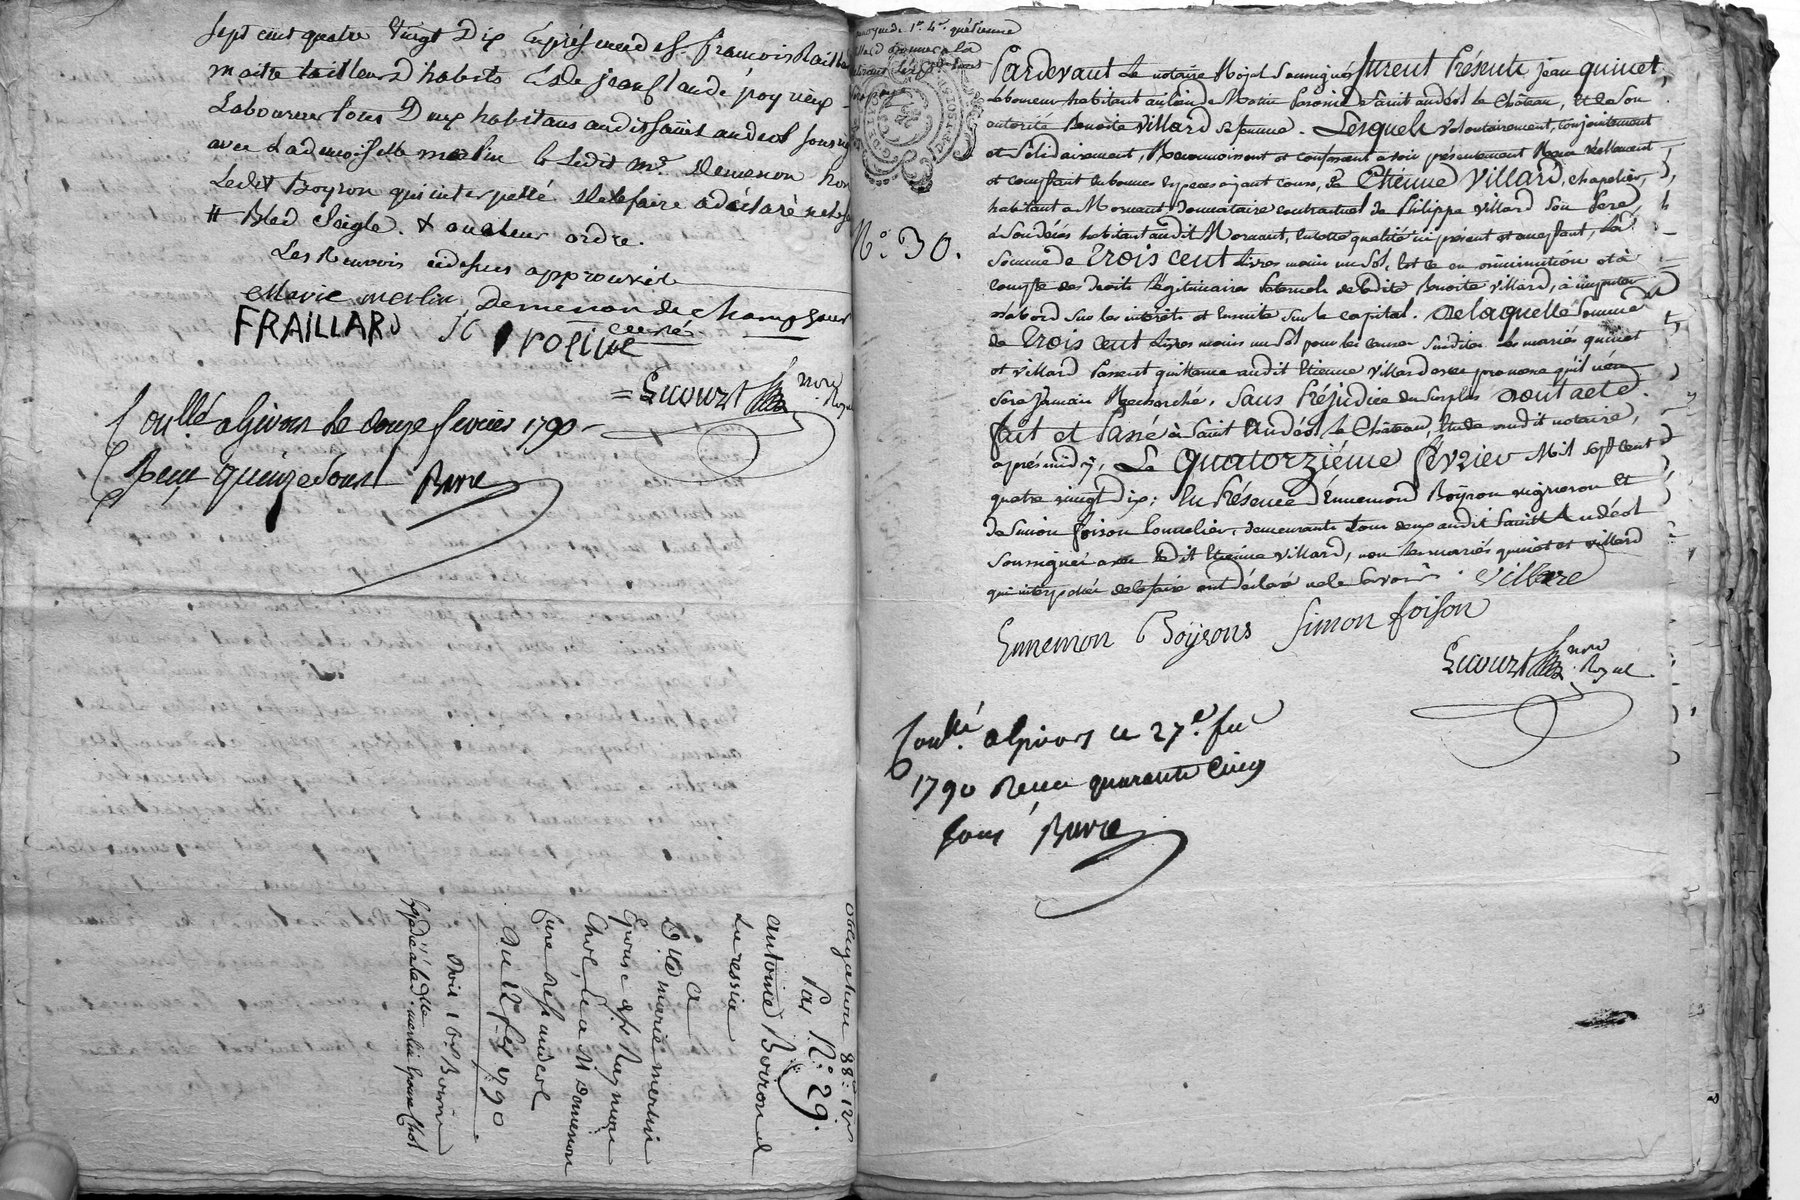 sept cent quatre vingt Dix en présence de Sr. francois Raillard
maitre tailleur D'habits & de jean Claude poyrieux
Laboureur tous Deux habitans audit saint andéol soussignés
avec Lad. demoiselle merlin & ledit Mr. Demenon non
Ledit Boyron qui interpellé de le faire a déclaré ne le sçavoir
# Bled Seigle. & ou a leur ordre.
Les Renvois cidessus approuvés
Marie merlin Demenon de Champsaur
curé
FRAILLARD JC
Lecourt nore. Royal
Conllé a Givors le douze fevrier 1790
Reçu quinze sous
obligation 88# 12s
Par No. 29.
antoine Boiron
a
Dlle marie merlin
Epouse de Sr
Chol, & a M Demenon
Curé de St andeol
Du 12 fer 1790
Expédié à lad. dlle merlin Epouse Chol
No. 30.
Pardevant Le notaire Royal Soussigné furent Présents jean quinet,
Laboureur habitant au lieu de Paroisse de Saint andéol le Château, & de Son
autorité Benoite Villard sa femme. Lesquels volontairement, conjointement
et Solidairement, Reconnoissent et confessent avoir présentement Reçu réellement
et comptant en bonnes especes ayant cours, de Etienne Villard, chapelier,
habitant a Mornant, donnataire contractuel de Philippe Villard Son Pere,
à Son décès habitant audit Mornant, en cette qualité ici présent et acceptant, La
Somme de Trois cent Livres moins un Sol, Et ce en diminution et à
compte des droits Légitimaires Paternels de ladite Benoite Villard, à imputer
d'abord sur les intérêts et Ensuite sur le capital. De laquelle Somme
de Trois cent Livres moins un Sol pour les causes Susdites Les mariés quinet
et villard Passent quittance audit Etienne Villard avec promesse qu'il n'en
Sera jamais Recherché, Sans Préjudice du Surplus Dont acte.
fait et Passé à Saint Andéol le Château, Etude dudit notaire,
après midy, Le quatorzième février Mil Sept cent
quatre vingt dix; En Présence d'Ennemond Boÿron vigneron Et
de Simon foison tonnelier, demeurants tous deux audit Saint Andéol
Soussignés avec ledit Etienne Villard, non Les mariés quinet et villard
qui interpellés de le faire ont déclaré ne le Savoir. Villard
Ennemon Boÿrons Simon foison
Lecourt nore. Royal
Conllé a Givors ce 27e. fer
1790 Reçu quarante Cinq
sous